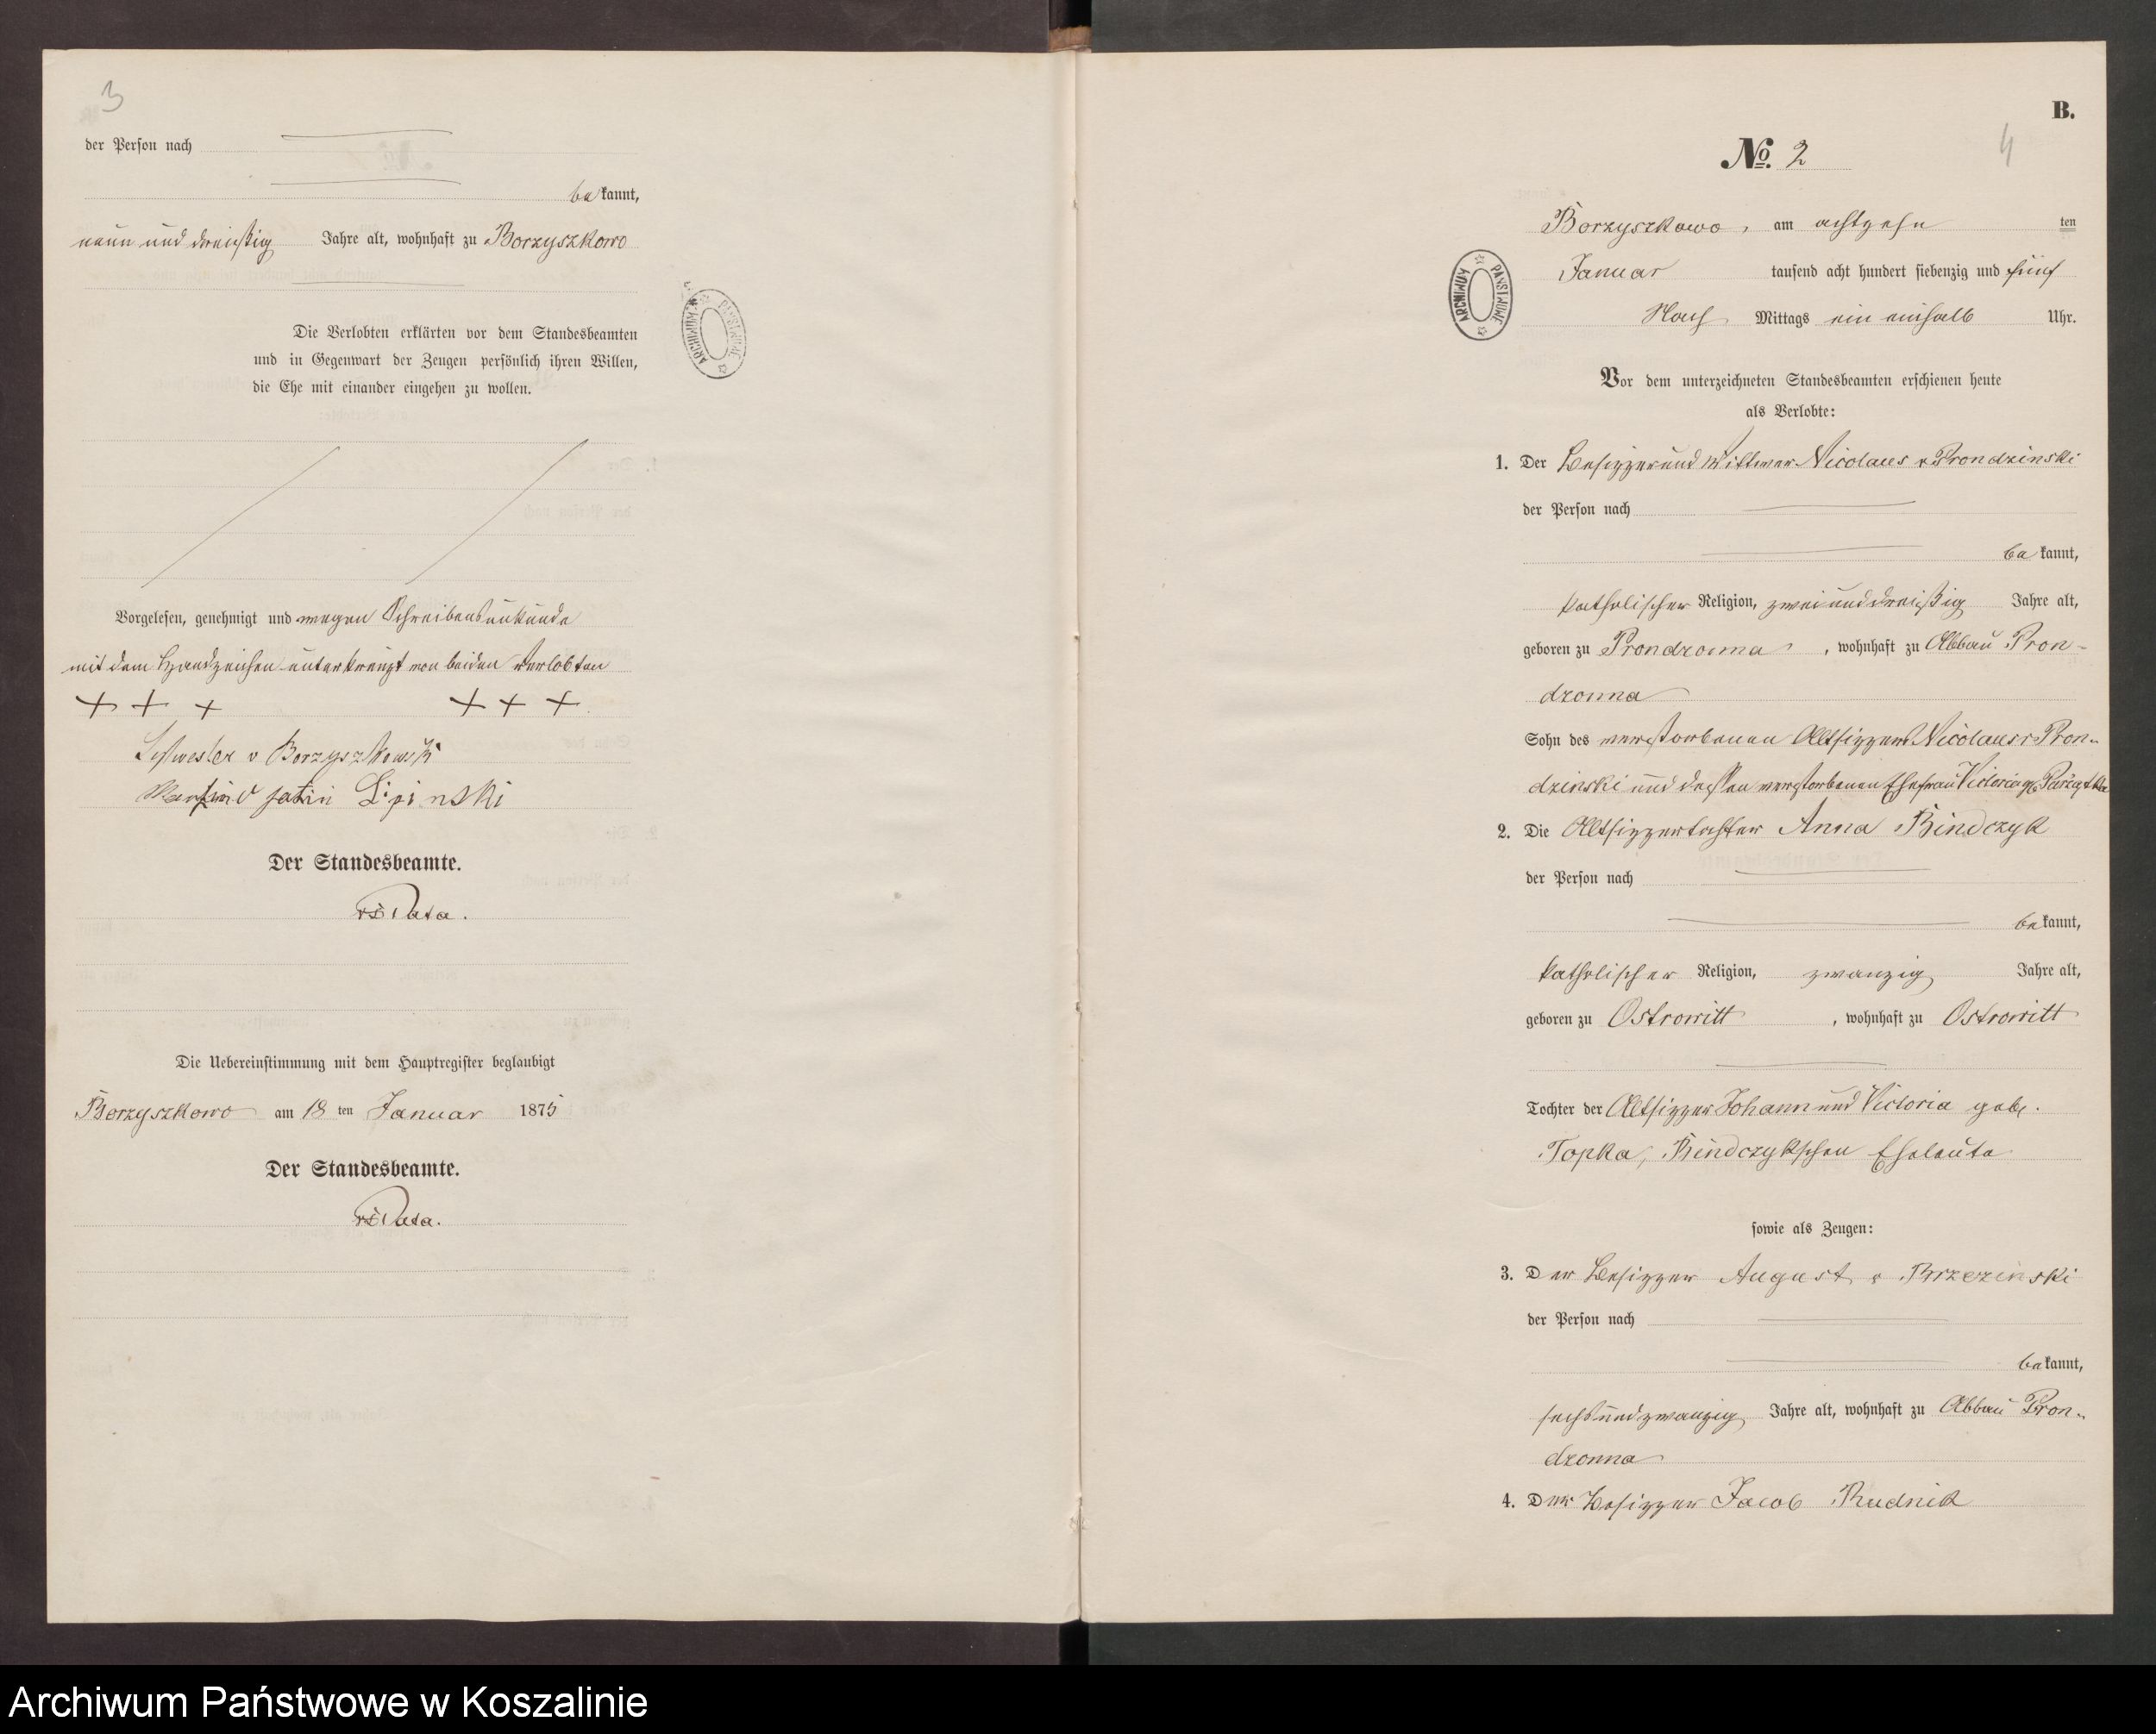 3
der Person nach
be kannt,
neun und dreißig Jahre alt, wohnhaft zu Borzyszkowo
Die Verlobten erklärten vor dem Standesbeamten
und in Gegenwart der Zeugen persönlich ihren Willen,
die Ehe mit einander eingehen zu wollen.
Vorgelesen, genehmigt und wegen Schreibensunkunde
mit dem Handzeichen unterkreuzt von beiden Verlobten
+ + + + + +
v Borzyszkowski
Lipinski
Der Standesbeamte.
Die Uebereinstimmung mit dem Hauptregister beglaubigt
Borzyszkowo am 18 ten Januar 1875
Der Standesbeamte.
ARCHIWUM PAŃSTWOWE
B.
No. 2
4
Borzyszkowo, am achtzehn ten
Januar tausend acht hundert siebenzig und fünf
Nach Mittags ein einhalb Uhr.
ARCHIWUM PAŃSTWOWE
Vor dem unterzeichneten Standesbeamten erschienen heute
als Verlobte:
1. Der Besitzer und Wittwer Nicolaus v Prondzinski
der Person nach
be kannt,
katholischer Religion, zwei und dreißig Jahre alt,
geboren zu Prondzonna, wohnhaft zu Abbau Pron-
dzonna
Sohn des verstorbenen Altsitzers Nicolaus v Pron-
dzinski und dessen verstorbenen Ehefrau Victoria
2. Die Altsitzertochter Anna Bindczyk
der Person nach
be kannt,
katholischer Religion, zwanzig Jahre alt,
geboren zu Ostrowitt, wohnhaft zu Ostrowitt
Tochter der Altsitzer Johann und Victoria geb.
Topka, Bindczykschen Eheleute
sowie als Zeugen:
3. Der Besitzer August v Brzezinski
der Person nach
be kannt,
sechs und zwanzig Jahre alt, wohnhaft zu Abbau Pron-
dzonna
4. Der Besitzer Jacob Rudnik
Archiwum Państwowe w Koszalinie